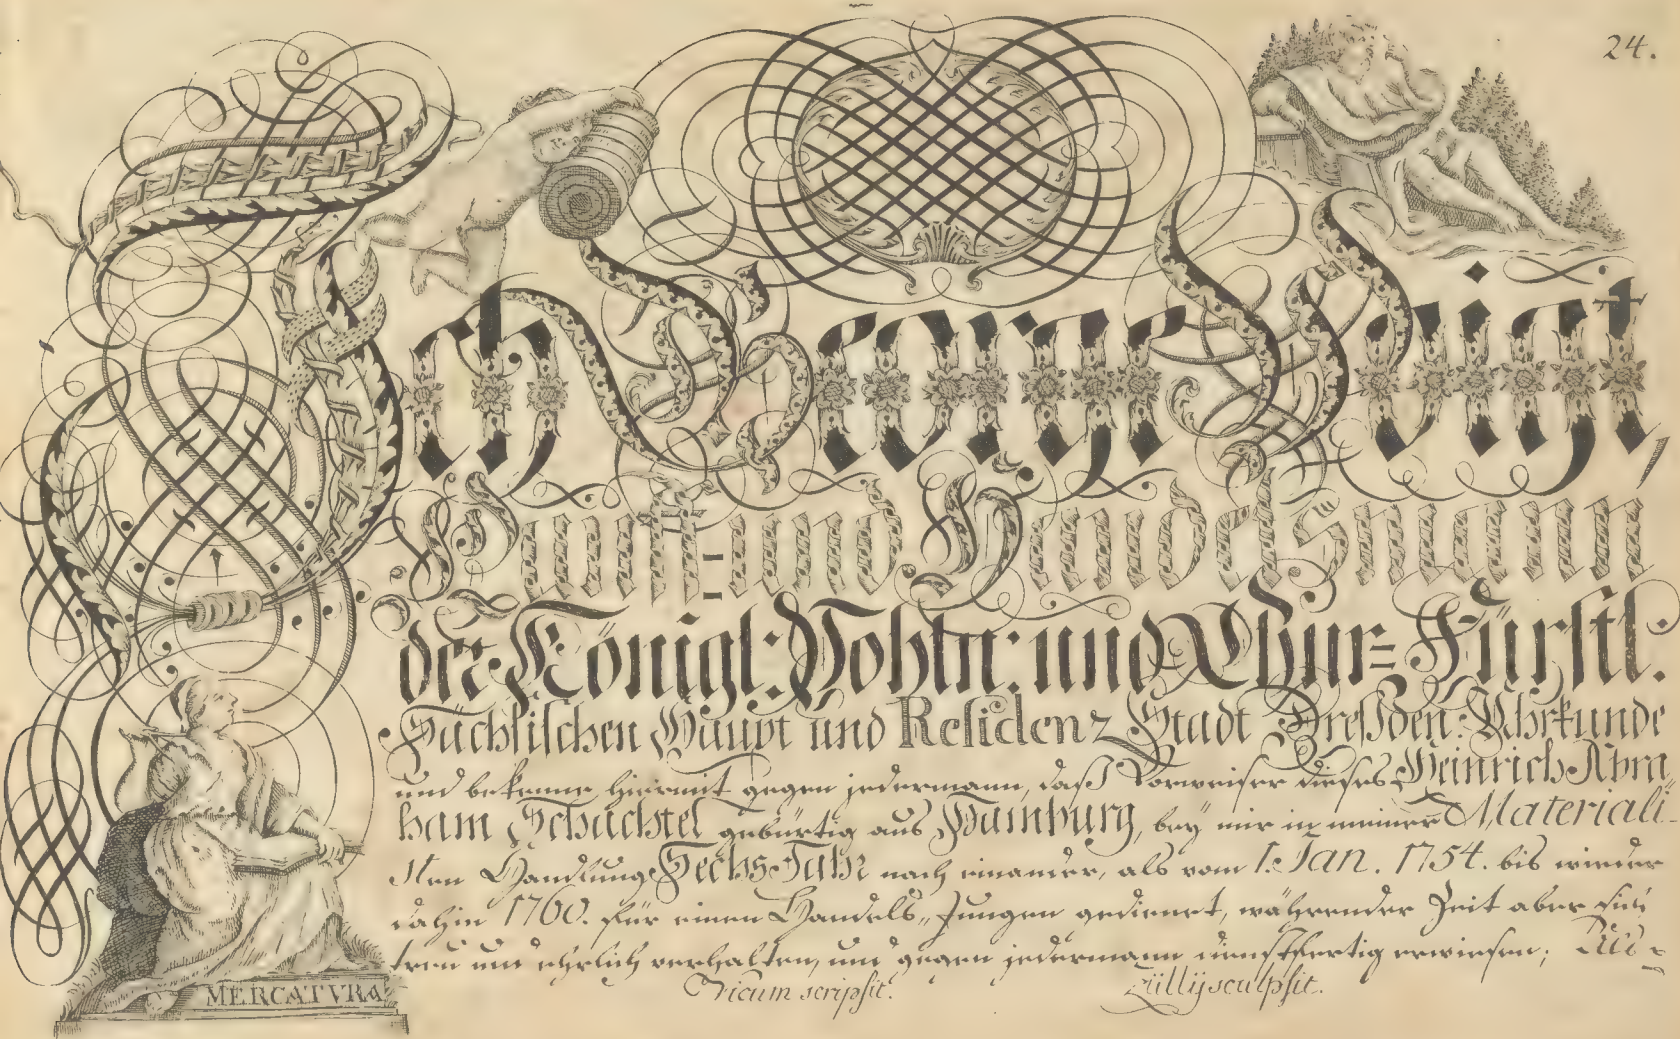 24.
Ich George Voigt,
Kunst- und Handelsmann
der Königl: Pohln: und Chur=Fürstl.
Sächsischen Haupt und Residenz Stadt Dreßden. Uhrkunde
und bekenne hiermit gegen jedermann, daß Vorweiser dieses Heinrich Abra„
ham Schachtel gebürtig aus Hamburg, bey mir in meiner Materiali-
sten Handlung Sechs Jahr nach einander, als vom 1. Jan. 1754. bis wieder
dahin 1760. für einen Handels„Jungen gedienet, währender Zeit aber sich
treu und ehrlich verhalten, und gegen jedermann dienstfertig erwiesen;
MERCATVRA
scripsit.
sculpsit.